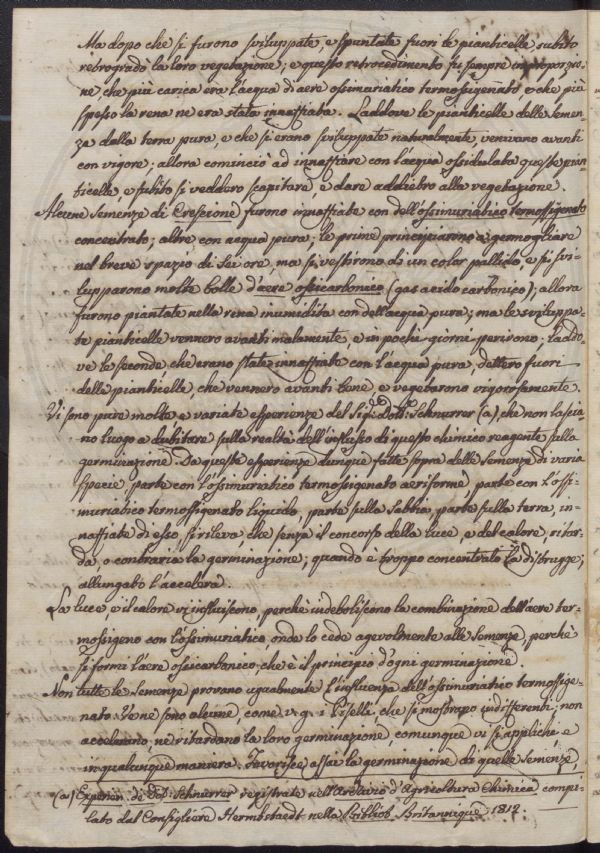 Ma dopo che si furono sviluppate, e spuntate fuori le pianticelle subito
retrogradò la loro vegetazione; e questo retrocedimento fu sempre in proporzio-
ne che più carica era l'acqua d'aere ossimuriatico termossigenato e che più
spesso la rena ne era stata innaffiata. Laddove le pianticelle delle Semen-
za dalla terra pura, e che si erano sviluppate naturalmente, venivano avanti
con vigore; allora cominciò ad innaffiare con l'acqua ossidulata queste pian-
ticelle, e subito si veddero scapitare, e dare addietro alla vegetazione.
Alcune Semenze di Crescione furono innaffiate con dell'ossimuriatico termossigenato
concentrato; altre con acqua pura; le prime principiarono a germogliare
nel breve spazio di Sei ore, ma si vestirono di un color pallido, e si svi-
lupparono molte bolle d'aere ossicarbonico (gas acido carbonico); allora
furono piantate nella rena inumidita con dell'acqua pura; ma le sviluppa-
te pianticelle vennero avanti malamente, e in pochi giorni perirono; laddo-
ve le seconde, che erano state innaffiate con l'acqua pura, dettero fuori
delle pianticelle, che vennero avanti bene, e vegetarono vigorosamente.
Vi sono pure molte e variate esperienze del Sig.r Dott.r Schnurrer (a), che non lascia-
no luogo a dubitare sulla realtà dell'influsso di questo chimico reagente sulla
germinazione. Da queste esperienze dunque fatte sopra delle Semenze di varia
specie parte con l'ossimuriatico termossigenato aeriforme, parte con l'ossi-
muriatico termossigenato liquido, parte sulla Sabbia, parte sulla terra, in-
naffiate di esso, si rileva, che senza il concorso della luce, e del calore, ritar-
da, o contraria la germinazione; quando è troppo concentrato la distrugge;
allungato l'accelera.
La luce, e il calore vi influiscono, perchè indeboliscono la combinazione dell'aere ter-
mossigeno con l'ossimuriatico, onde lo cede agevolmente alle Semenze, perchè
si formi l'aere ossicarbonico, che è il principio d'ogni germinazione.
Non tutte le Semenze provano ugualmente l'influenza dell'ossimuriatico termossige-
nato. Ve ne sono alcune, come v. g. i Piselli, che si mostrano indifferenti; non
accelerano, nè ritardano la loro germinazione, comunque vi si applichi, e
in qualunque maniera. Favorisce assai la germinazione di quelle Semenze,
(a) Experien. de Dott. Schnurrer registrate nell'Archivio d'Agricoltura Chimica compi-
lato dal Consigliere Hermbstaedt nella Biblioth. Britannique 1812.